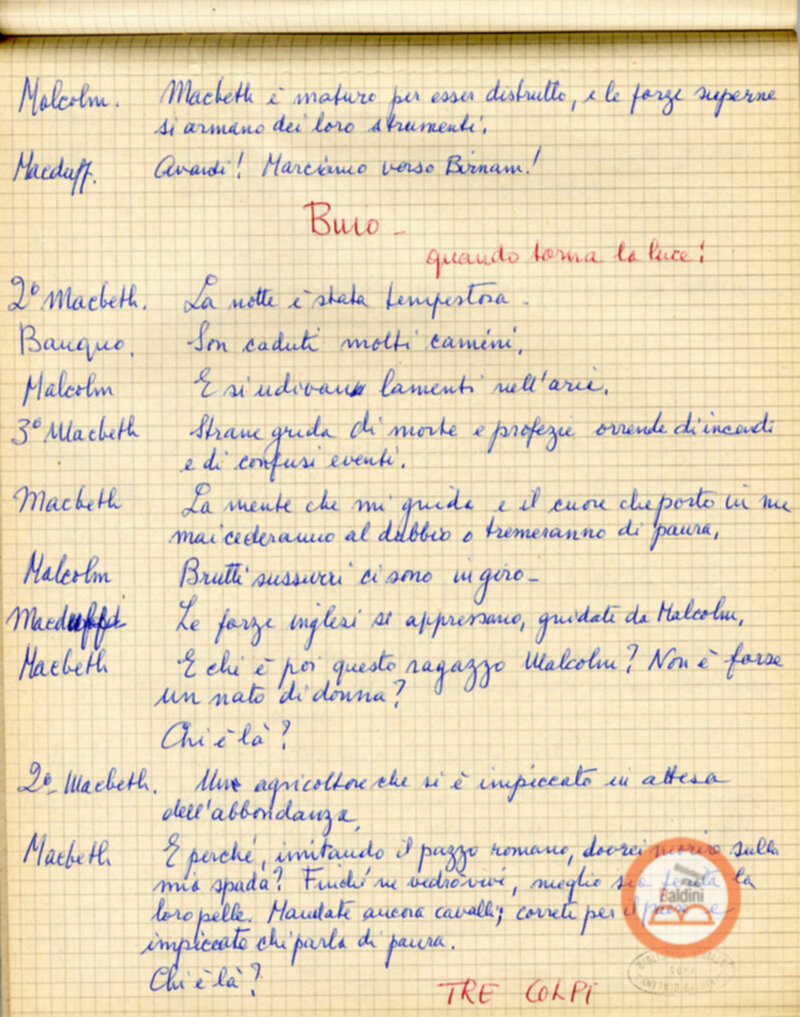 Malcolm. Macbeth è maturo per esser distrutto, e le forze superne
si armano dei loro strumenti.
Macduff. Avanti! Marciamo verso Birnam!
Buio -
quando torna la luce:
2º Macbeth. La notte è stata tempestosa -
Banquo. Son caduti molti camini.
Malcolm E si udivano lamenti nell'aria.
3º Macbeth Strane grida di morte e profezie orrende di incendi
e di confusi eventi.
Macbeth La mente che mi guida e il cuore che porto in me
mai cederanno al dubbio o tremeranno di paura.
Malcolm Brutti sussurri ci sono in giro -
Macduff Le forze inglesi si appressano, guidate da Malcolm.
Macbeth E chi è poi questo ragazzo Malcolm? Non è forse
un nato di donna?
Chi è là?
2º Macbeth. Un agricoltore che si è impiccato in attesa
dell'abbondanza
Macbeth E perché, imitando il pazzo romano, dovrei morire sulla
mia spada? Finché ne vedrò vivi, meglio sia ferita la
loro pelle. Mandate ancora cavalli; correte per il paese e
impiccate chi parla di paura.
Chi è là?
TRE COLPI
Baldini
BIBLIOTECA
ROMA
ANTONIO BALDINI